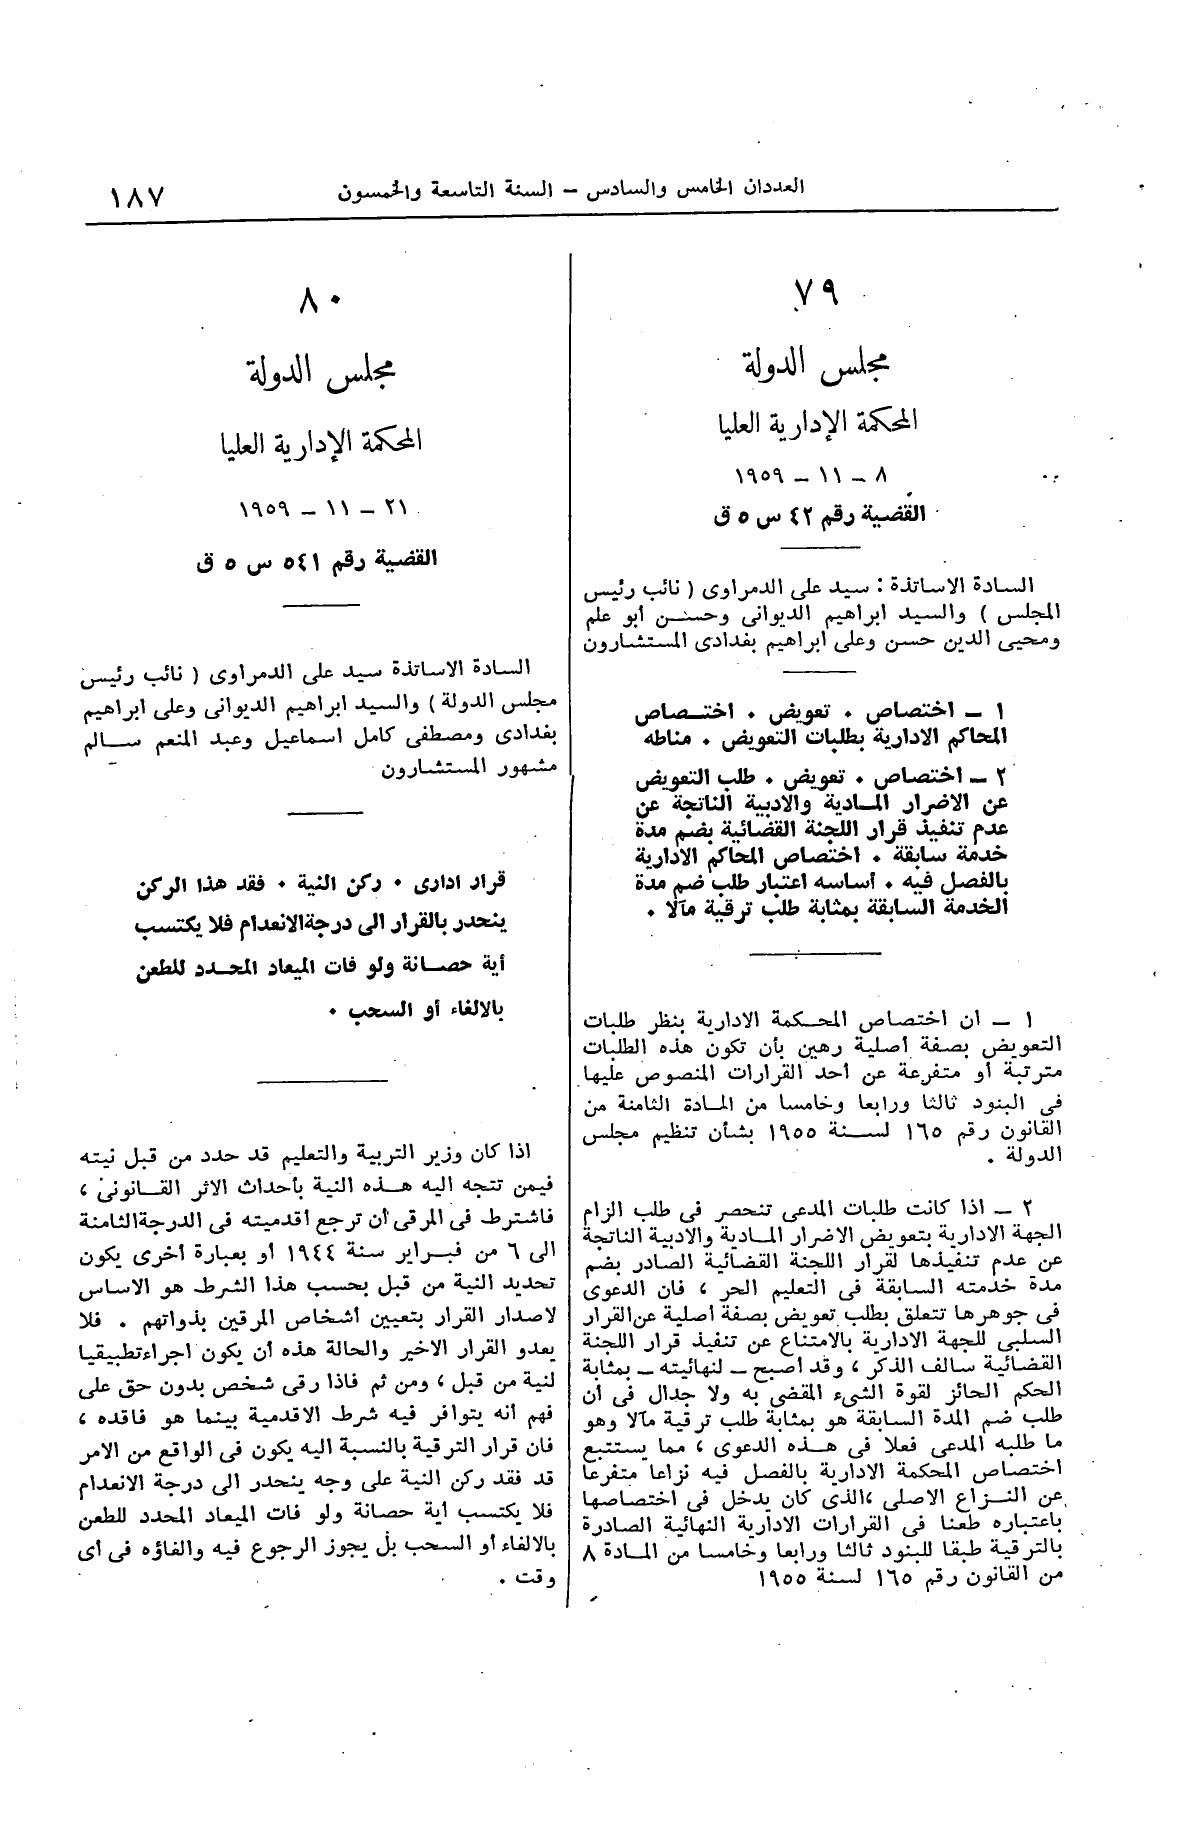 العددان الخامس والسادس – السنة التاسعة والخمسون
١٨٧
٧٩
مجلس الدولة
المحكمة الإدارية العليا
٨ – ١١ – ١٩٥٩
القضية رقم ٤٢ س ٥ ق
السادة الاساتذة : سيد على الدمراوى ( نائب رئيس
المجلس ) والسيد ابراهيم الديوانى وحسن أبو علم
ومحيى الدين حسن وعلى ابراهيم بغدادى المستشارون
١ – اختصاص . تعويض . اختصاص
المحاكم الادارية بطلبات التعويض . مناطه
٢ – اختصاص . تعويض . طلب التعويض
عن الاضرار المادية والادبية الناتجة عن
عدم تنفيذ قرار اللجنة القضائية بضم مدة
خدمة سابقة . اختصاص المحاكم الادارية
بالفصل فيه . أساسه اعتبار طلب ضم مدة
الخدمة السابقة بمثابة طلب ترقية مآلا .
١ – ان اختصاص المحكمة الادارية بنظر طلبات
التعويض بصفة أصلية رهين بأن تكون هذه الطلبات
مترتبة أو متفرعة عن احد القرارات المنصوص عليها
فى البنود ثالثا ورابعا وخامسا من المادة الثامنة من
القانون رقم ١٦٥ لسنة ١٩٥٥ بشأن تنظيم مجلس
الدولة .
٢ – اذا كانت طلبات المدعى تنحصر فى طلب الزام
الجهة الادارية بتعويض الاضرار المادية والادبية الناتجة
عن عدم تنفيذها لقرار اللجنة القضائية الصادر بضم
مدة خدمته السابقة فى التعليم الحر ، فان الدعوى
فى جوهرها تتعلق بطلب تعويض بصفة أصلية عن القرار
السلبى للجهة الادارية بالامتناع عن تنفيذ قرار اللجنة
القضائية سالف الذكر ، وقد أصبح – لنهائيته – بمثابة
الحكم الحائز لقوة الشىء المقضى به ولا جدال فى أن
طلب ضم المدة السابقة هو بمثابة طلب ترقية مآلا وهو
ما طلبه المدعى فعلا فى هذه الدعوى ، مما يستتبع
اختصاص المحكمة الادارية بالفصل فيه نزاعا متفرعا
عن النزاع الاصلى ،الذى كان يدخل فى اختصاصها
باعتباره طعنا فى القرارات الادارية النهائية الصادرة
بالترقية طبقا للبنود ثالثا ورابعا وخامسا من المادة ٨
من القانون رقم ١٦٥ لسنة ١٩٥٥
٨٠
مجلس الدولة
المحكمة الإدارية العليا
٢١ – ١١ – ١٩٥٩
القضية رقم ٥٤١ س ٥ ق
السادة الاساتذة سيد على الدمراوى ( نائب رئيس
مجلس الدولة ) والسيد ابراهيم الديوانى وعلى ابراهيم
بغدادى ومصطفى كامل اسماعيل وعبد المنعم سالم
مشهور المستشارون
قرار ادارى . ركن النية . فقد هذا الركن
ينحدر بالقرار الى درجة الانعدام فلا يكتسب
أية حصانة ولو فات الميعاد المحدد للطعن
بالالغاء أو السحب .
اذا كان وزير التربية والتعليم قد حدد من قبل نيته
فيمن تتجه اليه هذه النية بأحداث الاثر القانونى ،
فاشترط فى المرقى أن ترجع أقدميته فى الدرجة الثامنة
الى ٦ من فبراير سنة ١٩٤٤ أو بعبارة أخرى يكون
تحديد النية من قبل بحسب هذا الشرط هو الاساس
لاصدار القرار بتعيين أشخاص المرقين بذواتهم . فلا
يعدو القرار الاخير والحالة هذه أن يكون اجراء تطبيقيا
لنية من قبل ، ومن ثم فاذا رقى شخص بدون حق على
فهم أنه يتوافر فيه شرط الاقدمية بينما هو فاقده ،
فان قرار الترقية بالنسبة اليه يكون فى الواقع من الامر
قد فقد ركن النية على وجه ينحدر الى درجة الانعدام
فلا يكتسب أية حصانة ولو فات الميعاد المحدد للطعن
بالالغاء أو السحب بل يجوز الرجوع فيه والغاؤه فى أى
وقت .